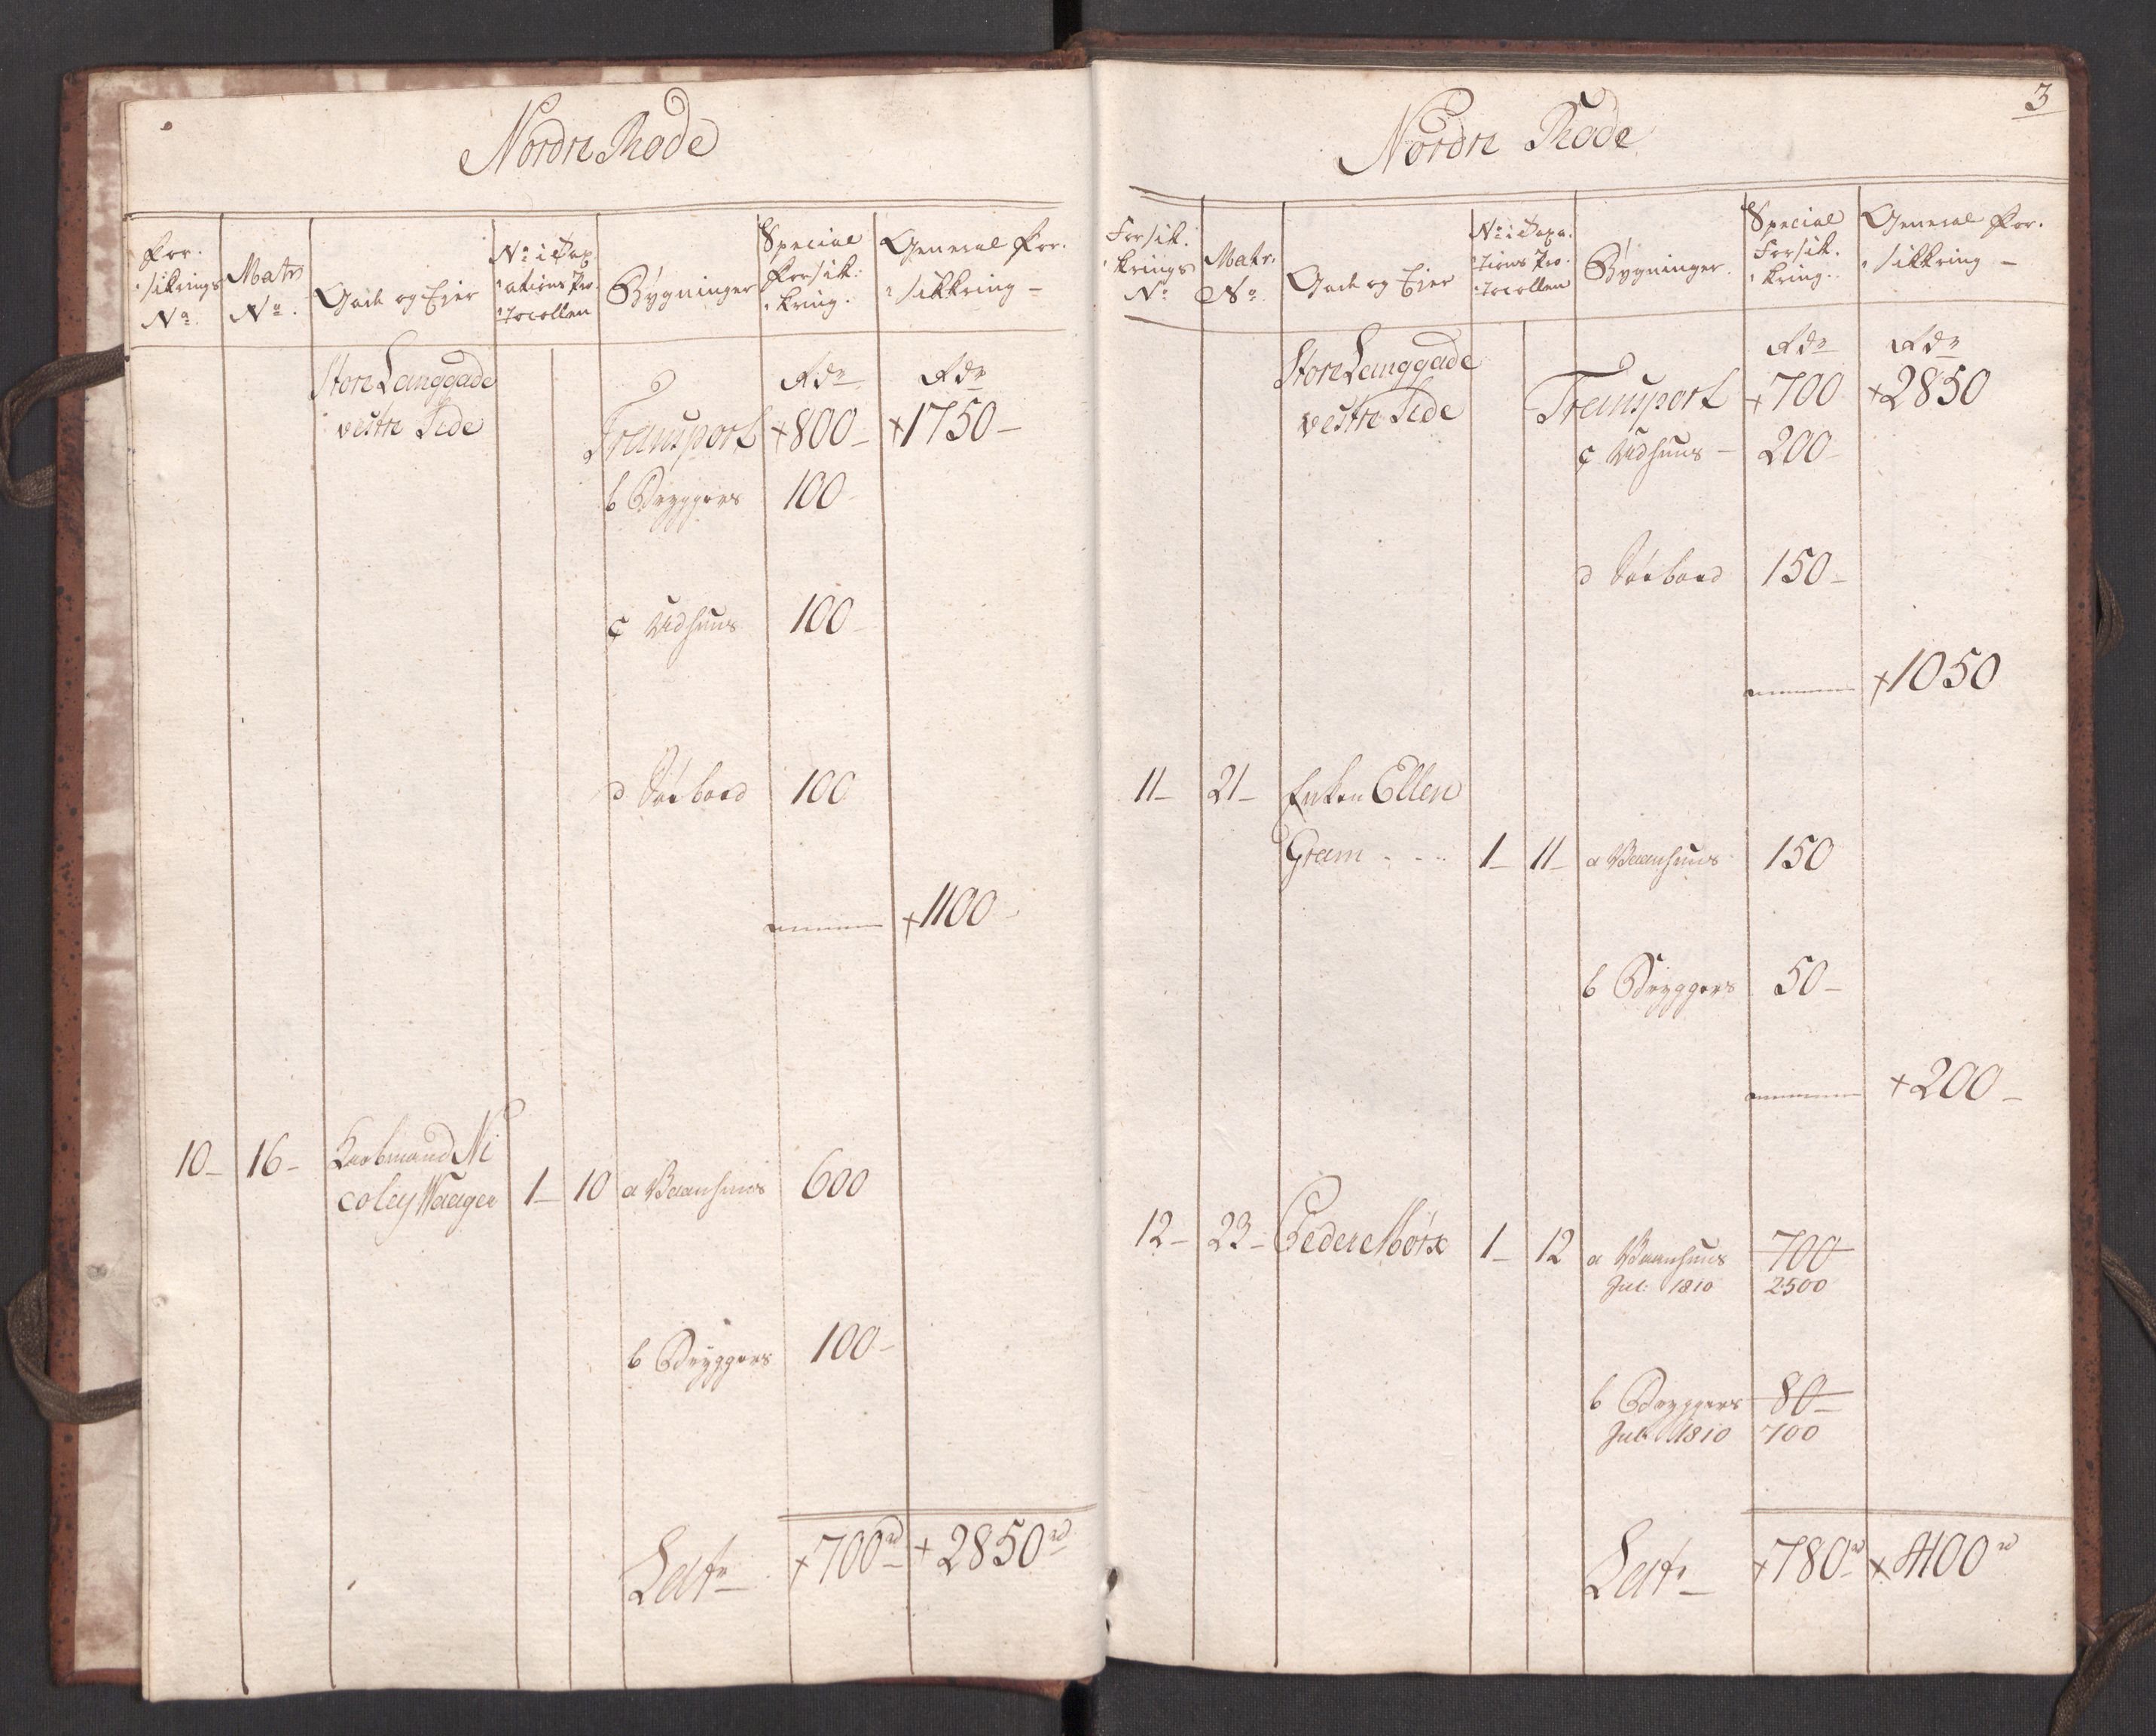 Nordre Rode
For-
sikrings
No.
Matr
No.
Gade og Ejer
No i Tax
ations Pro
tocollen
Bygninger
Special
Forsik:
kring.
General For-
sikkring -
Store Langgade
vestre Side
Rdr
Rdr
Transport +800- +1750-
b Bryggers 100
c Udhuus 100
d Søeboed 100
+1100
10- 16- Kiøbmand Ni
colay Waager 1- 10 a Vaanhuus 600
b Bryggers 100-
Late +700rd +2850rd
3
Nordre Rode
Forsik.
krings
No
Matr.
No.
Gade og Ejer
No i Taxa-
tions Pro-
tocollen
Bygninger.
Special
Forsik-
kring.
General For-
sikkring -
Store Langgade
vestre Side
Rdr
Rdr
Transport +700 +2850
c Udhuus - 200-
d Søeboed 150-
+1050
11- 21- Enken Ellen
Gram - - - 1- 11- a Vaanhuus 150
b Bryggers 50-
+200-
12- 23- Peder Mørx 1- 12 a Vaanhuus 700
Jul: 1810 2500
b Bryggers 80-
Jul: 1810 700
Late +780rd +4100rd